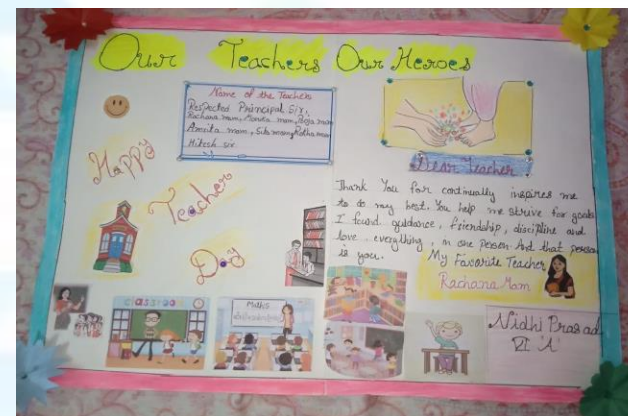 Our Teachers Our Heroes
Name of the Teachers
Respected Principal Sir,
Rachana mam, Mamta mam, Pooja mam
Amrita mam, Sita mam, Ratna mam
Hitesh sir
Happy
Teacher
Day
Dear Teacher
Thank You for continually inspires me
to do my best. You help me strive for goals
I found guidance, friendship, discipline and
love, everything, in one person And that person
is you.
My Favorite Teacher
Rachana Mam
classroom
Maths
Nidhi Prasad
VI 'A'